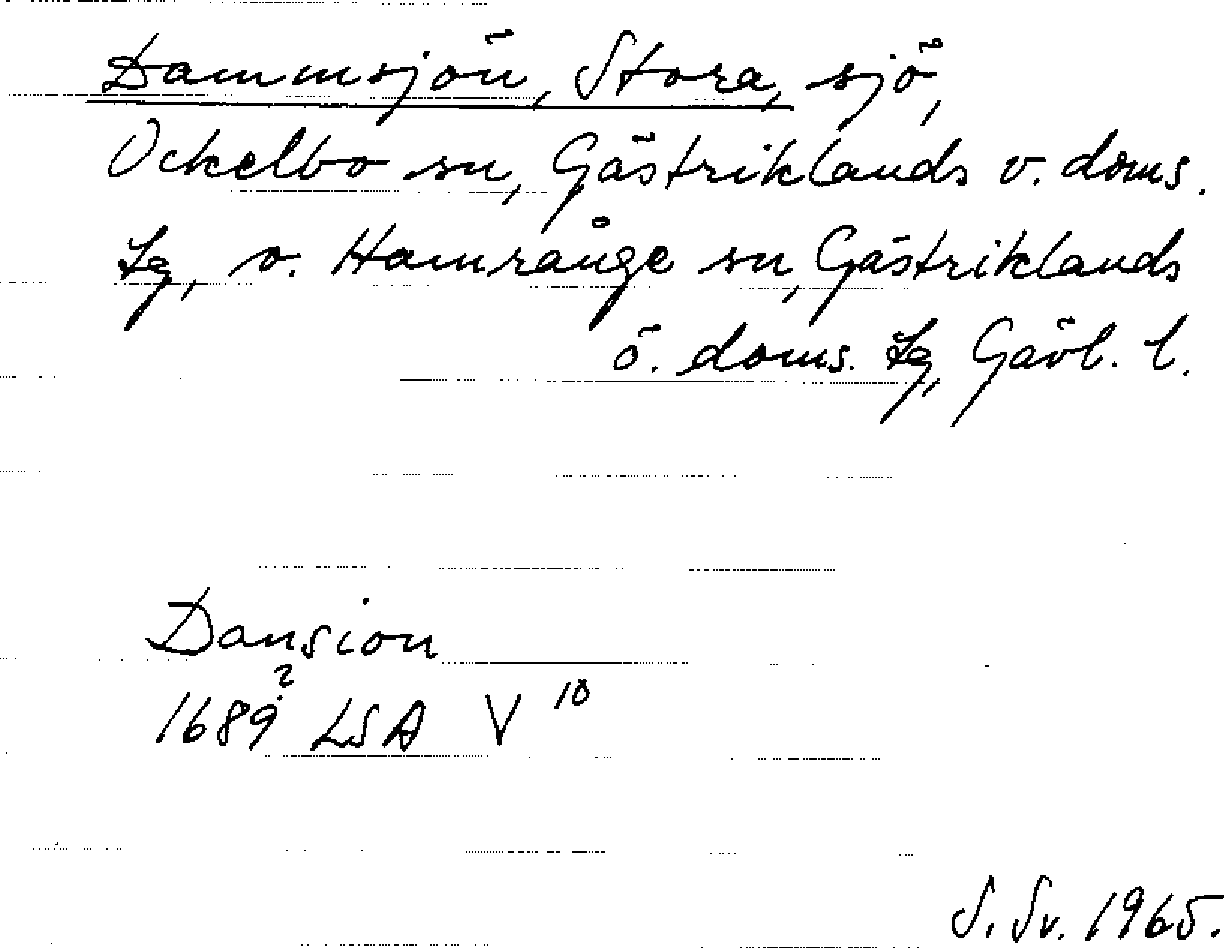 Dammsjön, Stora, sjö,
Ockelbo sn, Gästriklands v. doms.
tg, o. Hamrånge sn, Gästriklands
ö. doms. tg, Gävl. l.
Dansion
1689? LSA V 10
S. Sv. 1965.